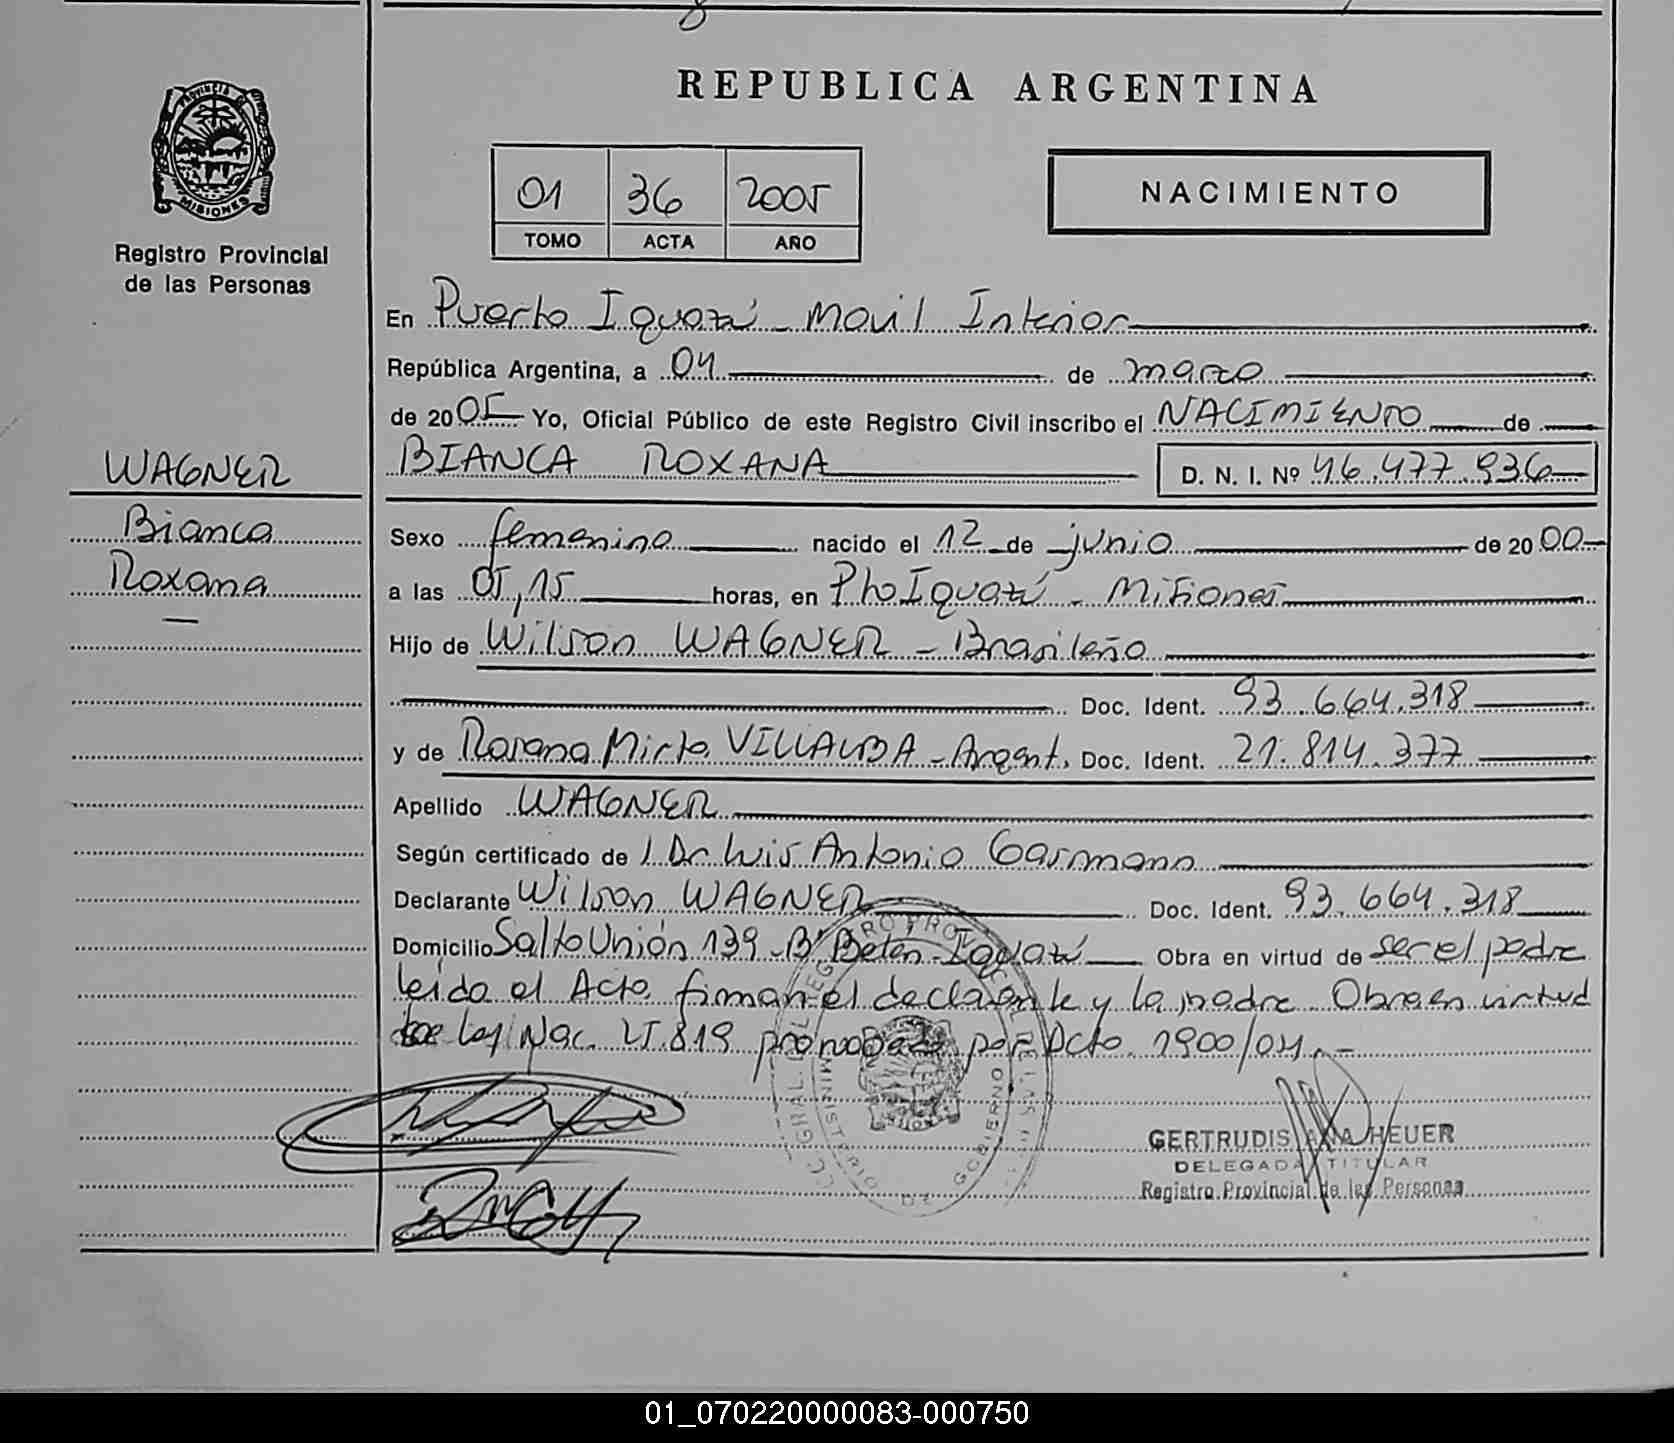 REPUBLICA ARGENTINA
PROVINCIA DE
MISIONES
Registro Provincial
de las Personas
01 36 2005
TOMO ACTA AÑO
NACIMIENTO
En Puerto Iguazú - Movil Interior
República Argentina, a 04 de marzo
de 2005 Yo, Oficial Público de este Registro Civil inscribo el NACIMIENTO de
WAGNER
BIANCA ROXANA D. N. I. Nº 46.477.936
Bianca
Sexo femenino nacido el 12 de junio de 2000
Roxana
a las 05,15 horas, en Pto Iguazú - Misiones
Hijo de Wilson WAGNER - Brasileño
Doc. Ident. 93.664.318
y de Roxana Mirta VILLALBA - Argent. Doc. Ident. 21.814.377
Apellido WAGNER
Según certificado de Dr Luis Antonio
Declarante Wilson WAGNER Doc. Ident. 93.664.318
Domicilio Salto Unión 139 - Bº Belén - Iguazú Obra en virtud de ser el padre
leída el Acta, firman el declarante y la madre. Obra en virtud
de Ley Nac. 25.819 por Dcto 1900/04.-
MINISTERIO DE GOBIERNO
GERTRUDIS ANA HEUER
DELEGADA TITULAR
Registro Provincial de las Personas
01_070220000083-000750